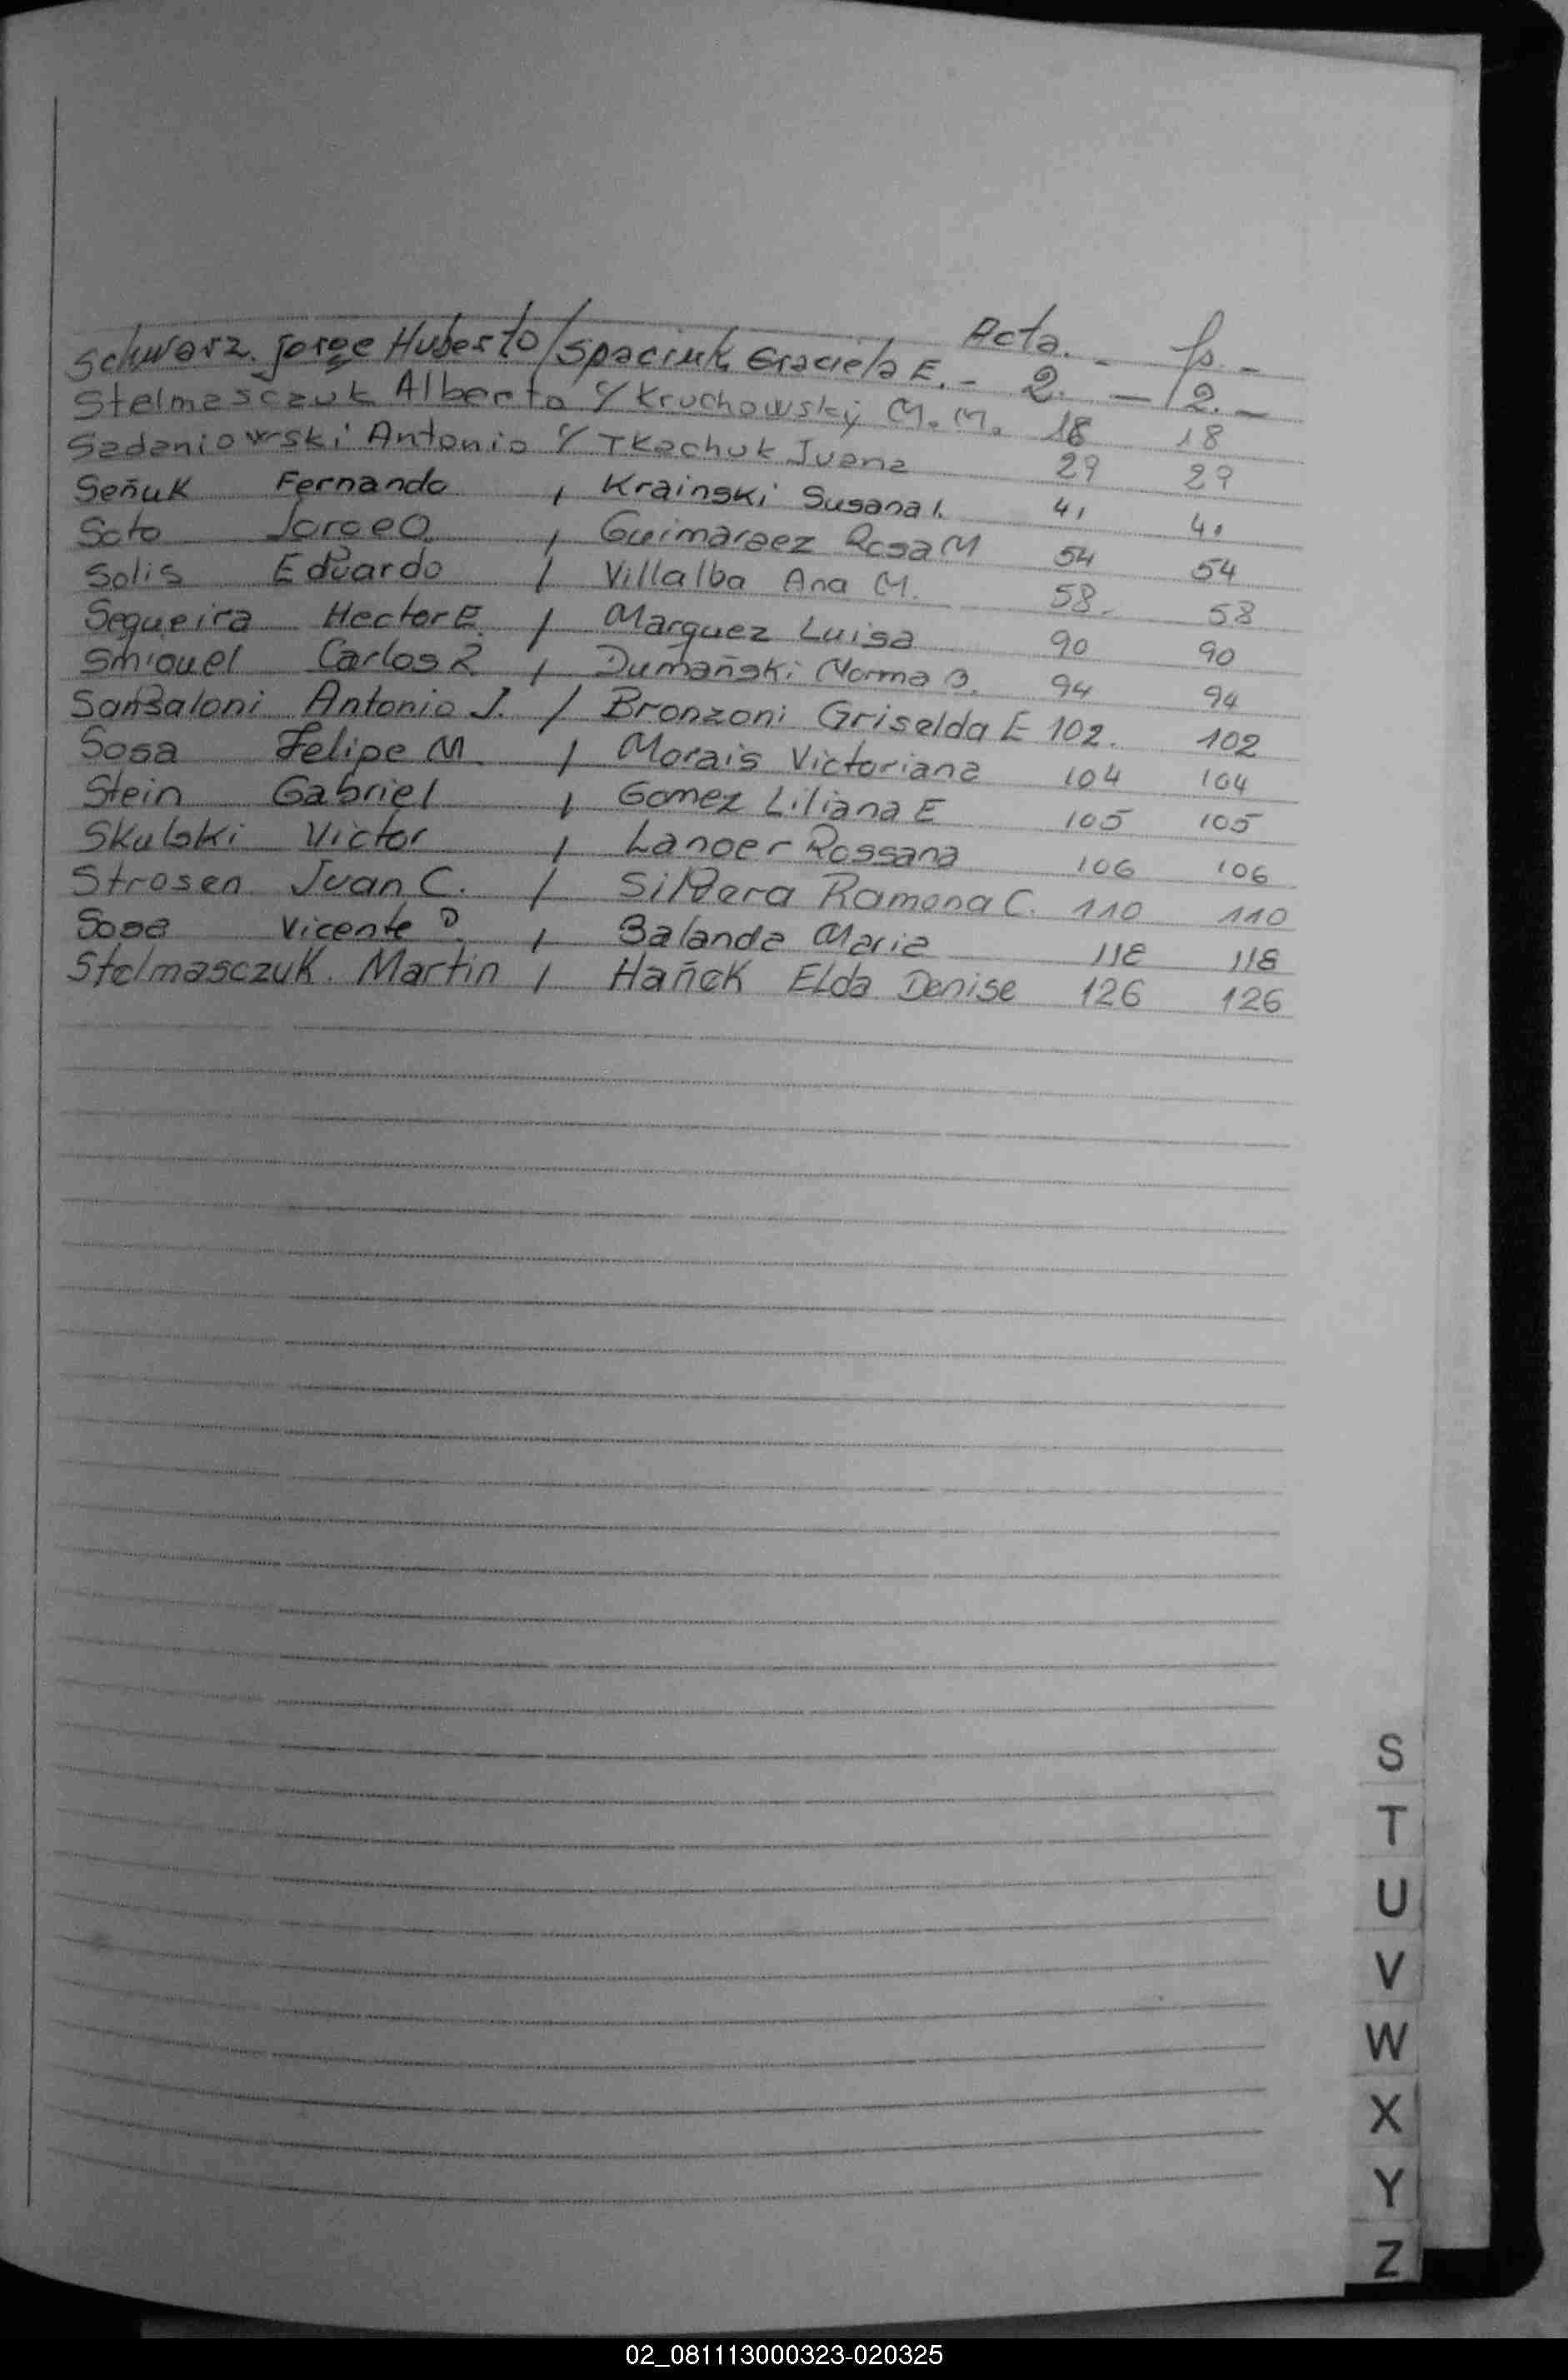 Acta. - fs. -
Schwarz. Jorge Huberto / Spaciuk Graciela E. - 2. - / 2. -
Stelmasczuk Alberto c/ Kruchowsky M. M. 18 18
Sadaniowski Antonio c/ Tkachuk Juana 29 29
Señuk Fernando / Krainski Susana I. 41 41
Soto Jorge O. / Guimaraez Rosa M 54 54
Solis Eduardo / Villalba Ana M. 58 58
Sequeira Hector E. / Marquez Luisa 90 90
Smiguel Carlos R / Dumañski Norma B. 94 94
Antonio J. / Bronzoni Griselda E 102. 102
Sosa Felipe M. / Morais Victoriana 104 104
Stein Gabriel / Gomez Liliana E 105 105
Skulski Victor / Langer Rossana 106 106
Strosen Juan C. / Silvera Ramona C. 110 110
Sosa Vicente D. / Balanda Maria 118 118
Stelmasczuk. Martin / Hañek Elda Denise 126 126
S
T
U
V
W
X
Y
Z
02_081113000323-020325